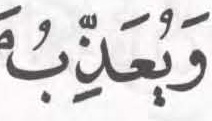 وَيُعَذِّبُ